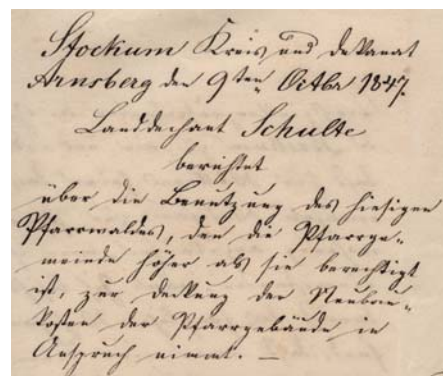 Stockum Kreis und Dekanat
Arnsberg den 9ten Octbr 1847.
Landdechant Schulte
berichtet
über die Benutzung des hiesigen
Pfarrwaldes, den die Pfarrge-
meinde höher als sie berechtigt
ist, zur Deckung der Neubau-
kosten der Pfarrgebäude in
Anspruch nimmt. —